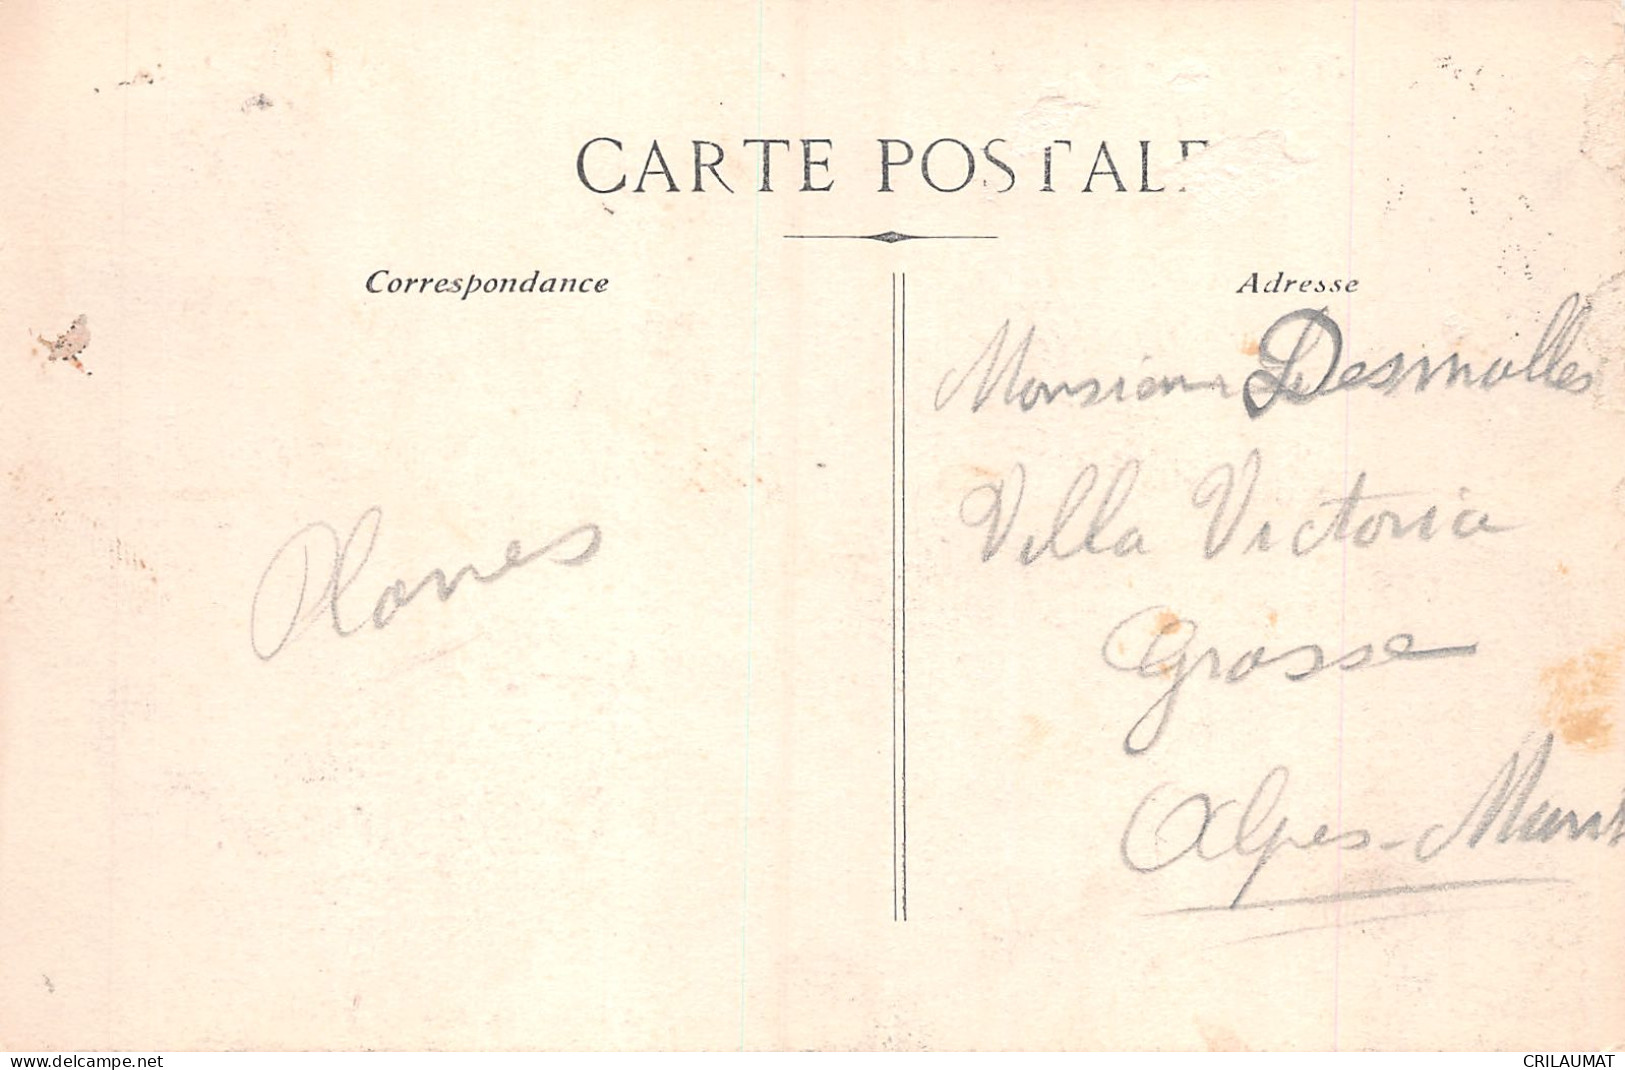 CARTE POSTALE
Correspondance
Adresse
Monsieur Desmolles
Villa Victoria
Grasse
Alpes-Marit
www.delcampe.net
CRILAUMAT